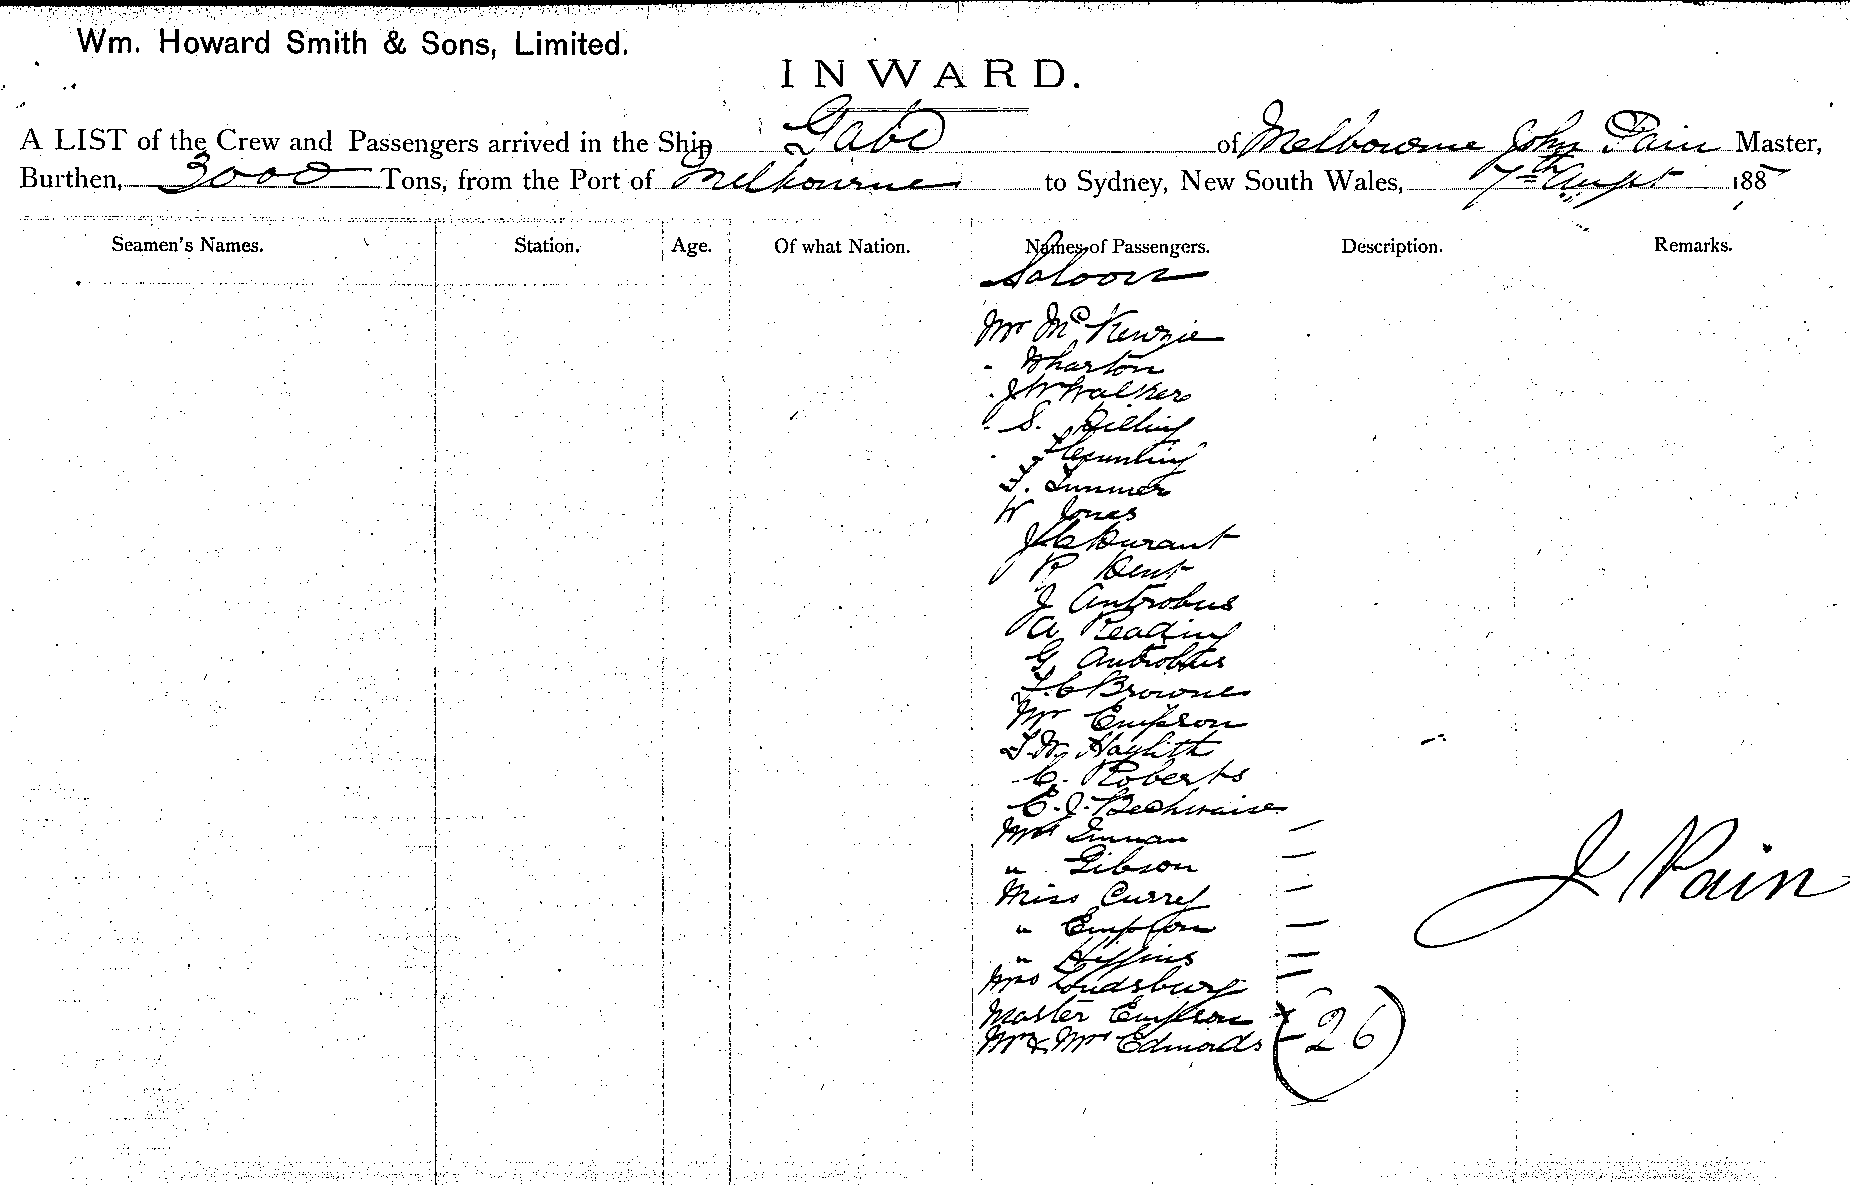 Wm. Howard Smith & Sons, Limited.
INWARD.
A LIST of the Crew and Passengers arrived in the Ship Gabo of Melbourne John Pain Master,
Burthen, 3000 Tons, from the Port of Melbourne to Sydney, New South Wales, 7th Augst 188
Seamen's Names. Station. Age. Of what Nation. Names of Passengers. Description. Remarks.
Saloon
Mr McKenzie
" Wharton
" J W Walker
" S.
F. Summer
W Jones
J C Durant
R Kent
J Antrobus
A Reading
G Antrobus
T. C Browne
Mr Empson
T. W.
C. Roberts
E. J. Beckwaise
Mrs
" Gibson
Miss Currey
" Empson
" Higgins
Mrs
Master Empson
Mr & Mrs Edmonds
26
J Pain